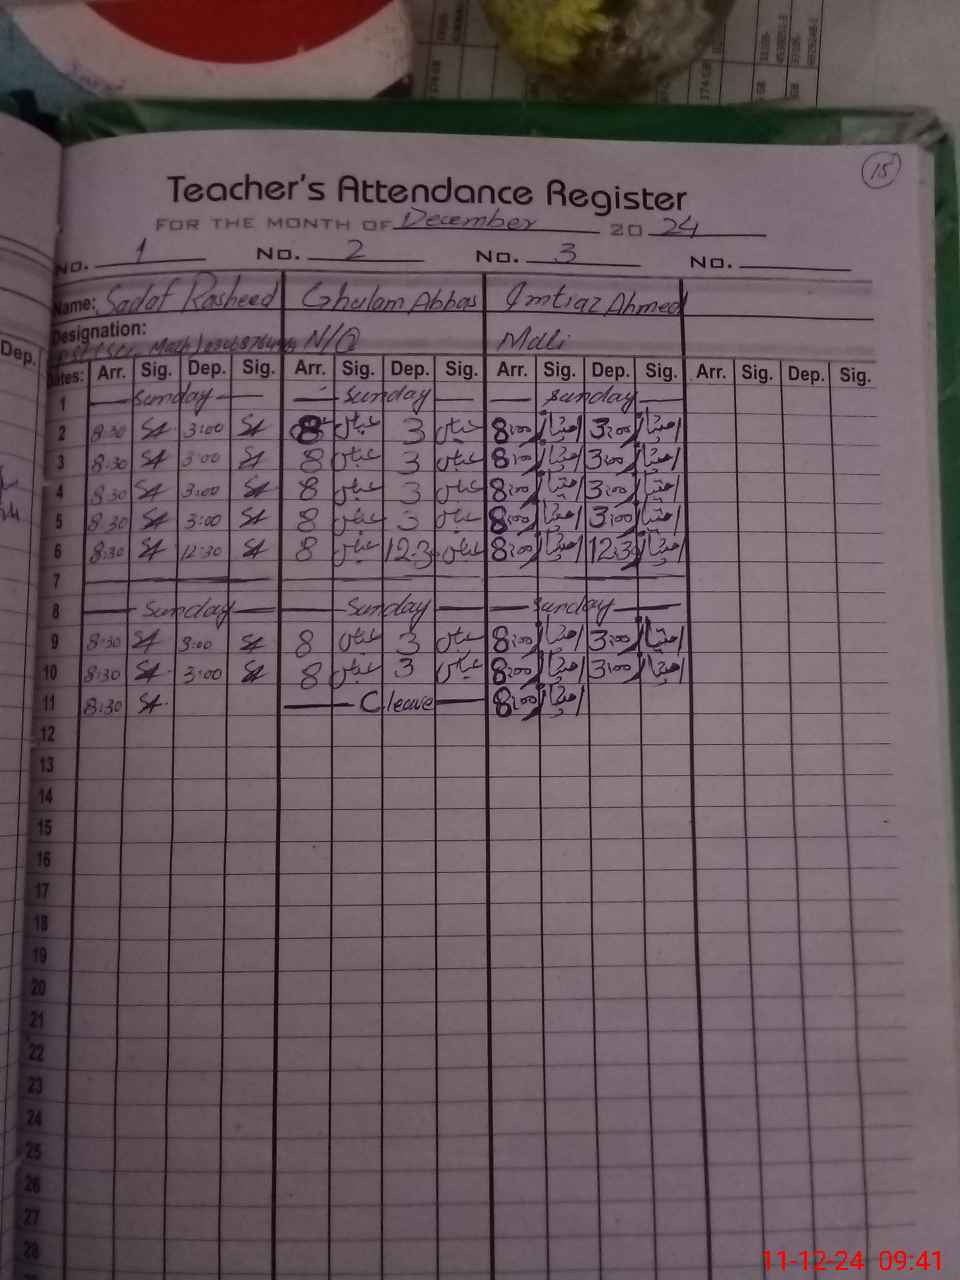 15
Teacher's Attendance Register
FOR THE MONTH OF December 2024
No. 1 No. 2 No. 3 No.
Name: Sadaf Rasheed Ghulam Abbas Imtiaz Ahmed
Designation:
N/Q Mali
Dep. Dates: Arr. Sig. Dep. Sig. Arr. Sig. Dep. Sig. Arr. Sig. Dep. Sig. Arr. Sig. Dep. Sig.
1 Sunday Sunday Sunday
2 8:30 3:00 8 عباس 3 عباس 8:00 امتیاز 3:00 امتیاز
3 8:30 3:00 8 عباس 3 عباس 8:00 امتیاز 3:00 امتیاز
4 8:30 3:00 8 عباس 3 عباس 8:00 امتیاز 3:00 امتیاز
5 8:30 3:00 8 عباس 3 عباس 8:00 امتیاز 3:00 امتیاز
6 8:30 12:30 8 عباس 12.3 عباس 8:00 امتیاز 12:30 امتیاز
7
8 Sunday Sunday Sunday
9 8:30 3:00 8 عباس 3 عباس 8:00 امتیاز 3:00 امتیاز
10 8:30 3:00 8 عباس 3 عباس 8:00 امتیاز 3:00 امتیاز
11 8:30 C leave 8:00 امتیاز
12
13
14
15
16
17
18
19
20
21
22
23
24
25
26
27
28
11-12-24 09:41